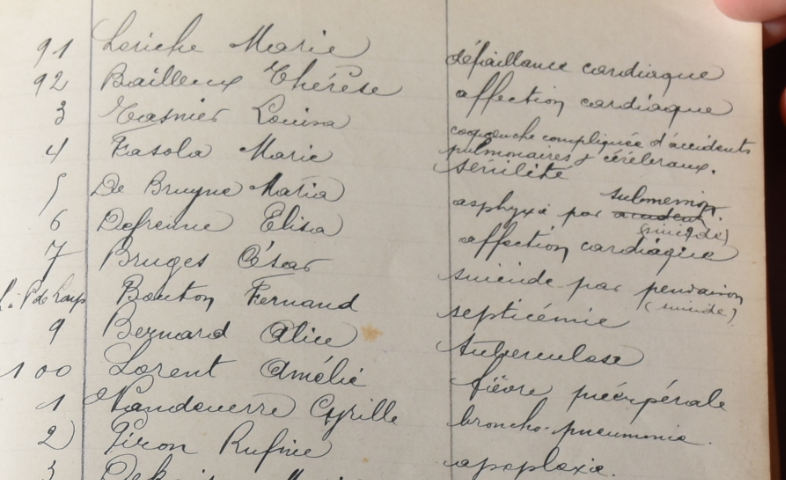 91 Leriche Marie défaillance cardiaque
92 Bailleux Thérèse affection cardiaque
3 Casnier Louisa coqueuche compliquée d'accidents
pulmonaires & cérébraux.
4 Fasola Marie sénilité
5 De Bruyne Maria asphyxie par accident submersion.
(suicide)
6 Defrenne Elisa affection cardiaque
7 Bruges César suicide par pendaison
(suicide)
Bouton Fernand septicémie
9 Bernard Alice tuberculose
100 Lorent Amélie fièvre puérpérale
1 Vandeuerre Cyrille broncho-pneumonie.
2) Piron Rufine apoplexie.
3